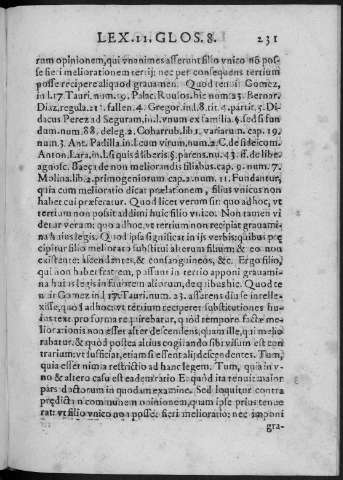 LEX. 11. GLOS. 8. 231
ram opinionem, qui vnanimes asserunt filio vnico nõ pos-
se fieri meliorationem tertij: nec per consequens tertium
posse recipere aliquod grauamen. Quod tenuit Gomez,
in l. 17. Tauri. num. 19. Palac. Roulos. hic num 25. Bernar.
Diaz. regula. 21 fallen. 4. Gregor. in l. 8. tit. 4. partit. 5. Di-
dacus Perez ad Seguram, in. l. vnum ex familia. §. sed si fun-
dum. num. 88. deleg. 2. Cobarrub. lib 1. variarum. cap. 19.
num. 3. Ant. Padilla. in l. cum virum, num. 2. C. de fideicom.
Anton. Lara. in l. si quis à liberis. §. parens. nu. 43. ff. de libe.
agnosc. Baeça de non meliorandis filiabus. cap. 9. num. 7.
Molina. lib. 2. primogeniorum cap. 2. num. 11. Fundantur,
quia cum melioratio dicat prælationem, filius vnicus non
habet cui præferatur. Quod licet verum sit: quo adhoc, vt
tertium non possit addimi huic filio vnico. Non tamen vi
detur verum: quo adhoc, vt tertium non recipiat grauami-
na huius legis. Quod ipsa significat in ijs verbis: quibus præ
cipitur filio meliorato substitui alterum filium: & eo non
existente: ascendentes, & consanguineos, &c. Ergo filio,
qui non habet fratrem, possunt in tertio apponi grauami-
na huius legis in fauorem aliorum, de quibus hic. Quod te
nuit Gomez in l 17. Tauri. num. 23. asserens dia se intelle-
xisse, quod adhoc vt tertium reciperet substitutiones hu-
ius
meliorationis non esset alter descendens, quam ille, qui melio
rabatur. & quòd postea alius cogitando sibi visum est con
trarium: vt sufficiat, etiam si essent alij descendentes. Tum,
quia esset nimia restrictio ad hanc legem. Tum, quia in v-
no & altero casu est eadem ratio Et quòd ita tenuit maior
pars doctorum in quodam examine. Sed loquitur contra
prædicta n communem opinionem, quam ipse prius tenue
rat: vt filio vnico non posset fieri melioratio; nec imponi
gra-